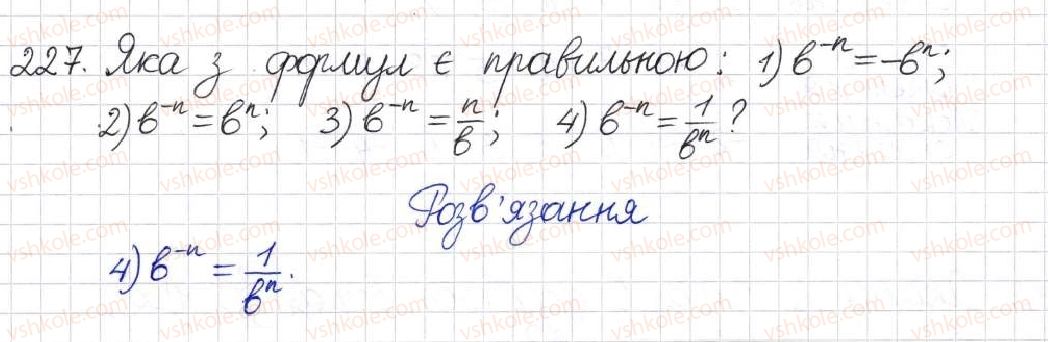 227. Яка з формул є правильною: 1) b⁻ⁿ = -bⁿ;
2) b⁻ⁿ = bⁿ; 3) b⁻ⁿ = n/b; 4) b⁻ⁿ = 1/bⁿ?
Розв'язання
4) b⁻ⁿ = 1/bⁿ.
vshkole.com